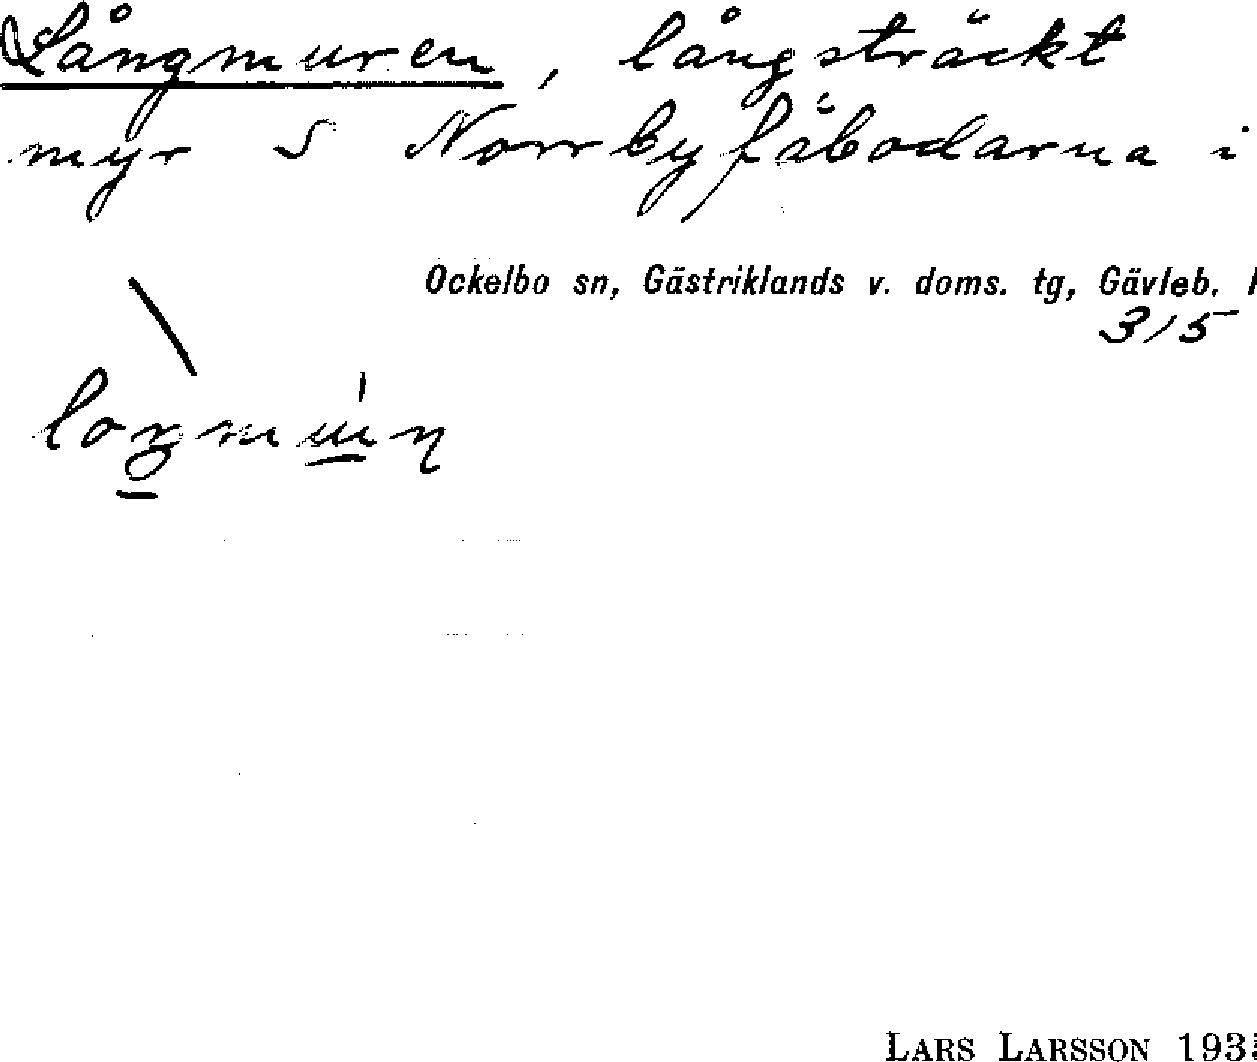 Långmuren, långsträckt
myr S Norrbyfäbodarna i
Ockelbo sn, Gästriklands v. doms. tg, Gävleb.
315
LARS LARSSON